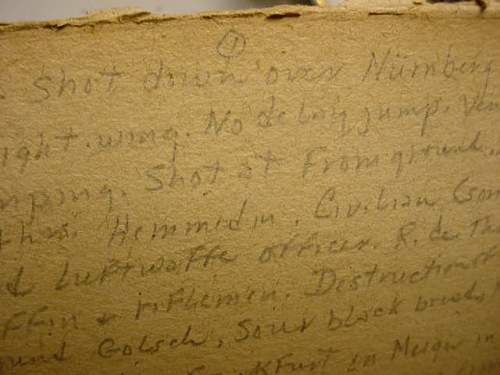 1
Shot down over Nürnberg
ight. wing. No delay jump.
mping. Shot at from ground.
Hemmed in. Civilian
Luftwaffe officer. R. de
ffin & riflemen. Destruction of
Golsch, Sour black bread,
kfurt im Main in